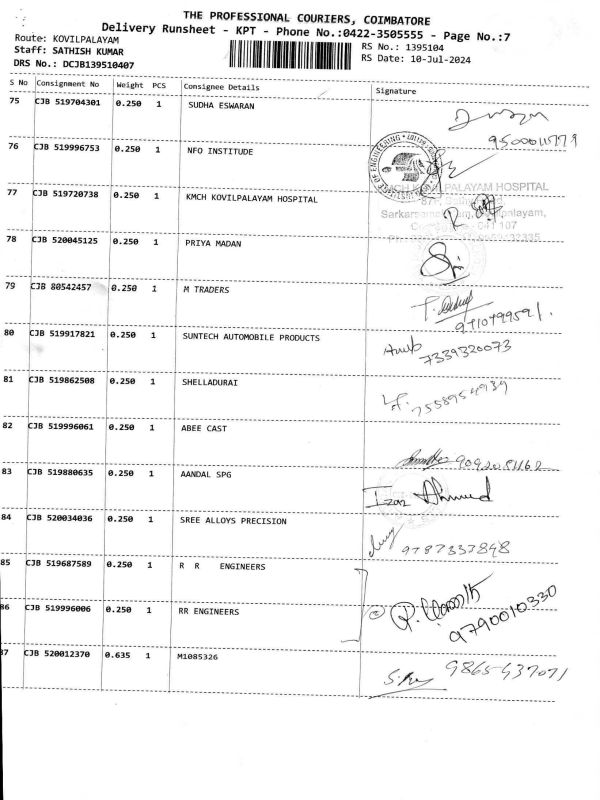 THE PROFESSIONAL COURIERS, COIMBATORE
Delivery Runsheet - KPT - Phone No.:0422-3505555 - Page No.:7
Route: KOVILPALAYAM
RS No.: 1395104
Staff: SATHISH KUMAR
RS Date: 10-Jul-2024
DRS No.: DCJB139510407
S No Consignment No Weight PCS Consignee Details Signature
75 CJB 519704301 0.250 1 SUDHA ESWARAN
76 CJB 519996753 0.250 1 NFO INSTITUDE
77 CJB 519720738 0.250 1 KMCH KOVILPALAYAM HOSPITAL
KMCH KOVILPALAYAM HOSPITAL
78 CJB 520045125 0.250 1 PRIYA MADAN
79 CJB 80542457 0.250 1 M TRADERS
80 CJB 519917821 0.250 1 SUNTECH AUTOMOBILE PRODUCTS
7339320073
81 CJB 519862508 0.250 1 SHELLADURAI
7558954939
82 CJB 519996061 0.250 1 ABEE CAST
83 CJB 519880635 0.250 1 AANDAL SPG
Ahmed
84 CJB 520034036 0.250 1 SREE ALLOYS PRECISION
9787337848
85 CJB 519687589 0.250 1 R R ENGINEERS
86 CJB 519996006 0.250 1 RR ENGINEERS
9790010330
87 CJB 520012370 0.635 1 M1085326
9865437071